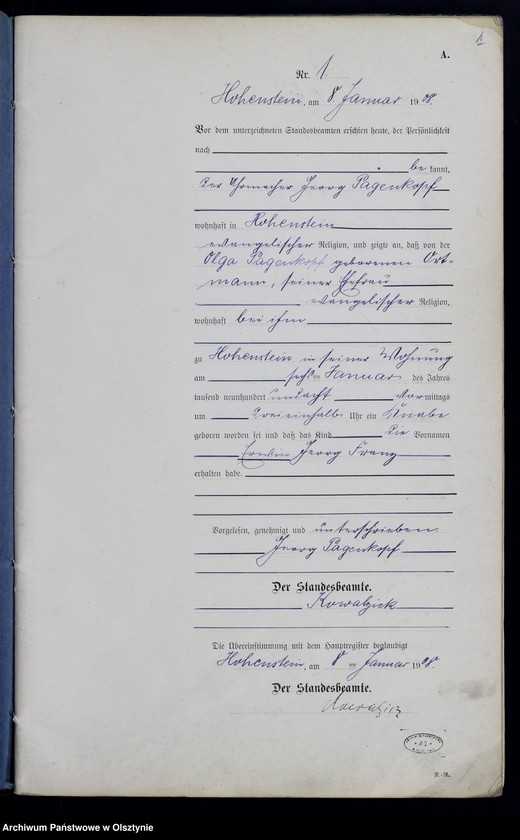 1
A.
Nr. 1.
Hohenstein, am 8. Januar 1908.
Vor dem unterzeichneten Standesbeamten erschien heute, der Persönlichkeit
nach
bekannt,
der Uhrmacher Georg Pagenkopf
wohnhaft in Hohenstein
evangelischer Religion, und zeigte an, daß von der
Olga Pagenkopf geborenen Ort-
mann, seiner Ehefrau
evangelischer Religion,
wohnhaft bei ihm
zu Hohenstein in seiner Wohnung
am sechsten Januar des Jahres
tausend neunhundert undacht vormittags
um dreieinhalb Uhr ein Knabe
geboren worden sei und daß das Kind die Vornamen
Erwin Georg Franz
erhalten habe.
Vorgelesen, genehmigt und unterschrieben.
Georg Pagenkopf
Der Standesbeamte.
Kowalzick
Die Übereinstimmung mit dem Hauptregister beglaubigt
Hohenstein, am 8ten Januar 1908.
Der Standesbeamte.
Kowalzick
R.-R.
Archiwum Państwowe w Olsztynie